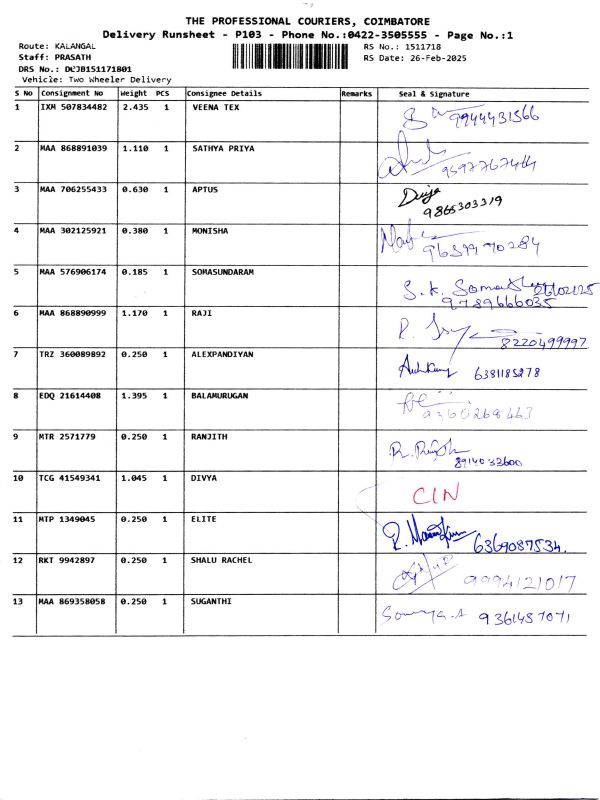 THE PROFESSIONAL COURIERS, COIMBATORE
Delivery Runsheet - P103 - Phone No.:0422-3505555 - Page No.:1
Route: KALANGAL RS No.: 1511718
Staff: PRASATH RS Date: 26-Feb-2025
DRS No.: DCJB151171801
Vehicle: Two Wheeler Delivery
S No Consignment No Weight PCS Consignee Details Remarks Seal & Signature
1 IXM 507834482 2.435 1 VEENA TEX 9944431566
2 MAA 868891039 1.110 1 SATHYA PRIYA
3 MAA 706255433 0.630 1 APTUS 9865303319
4 MAA 302125921 0.380 1 MONISHA
5 MAA 576906174 0.185 1 SOMASUNDARAM S.K. 
9789666035
6 MAA 868890999 1.170 1 RAJI 8220499997
7 TRZ 360089892 0.250 1 ALEXPANDIYAN 6381185278
8 EDQ 21614408 1.395 1 BALAMURUGAN 9360268463
9 MTR 2571779 0.250 1 RANJITH
10 TCG 41549341 1.045 1 DIVYA CIN
11 MTP 1349045 0.250 1 ELITE 6369087534.
12 RKT 9942897 0.250 1 SHALU RACHEL 9994121017
13 MAA 869358058 0.250 1 SUGANTHI Sowmya.A 9361457071